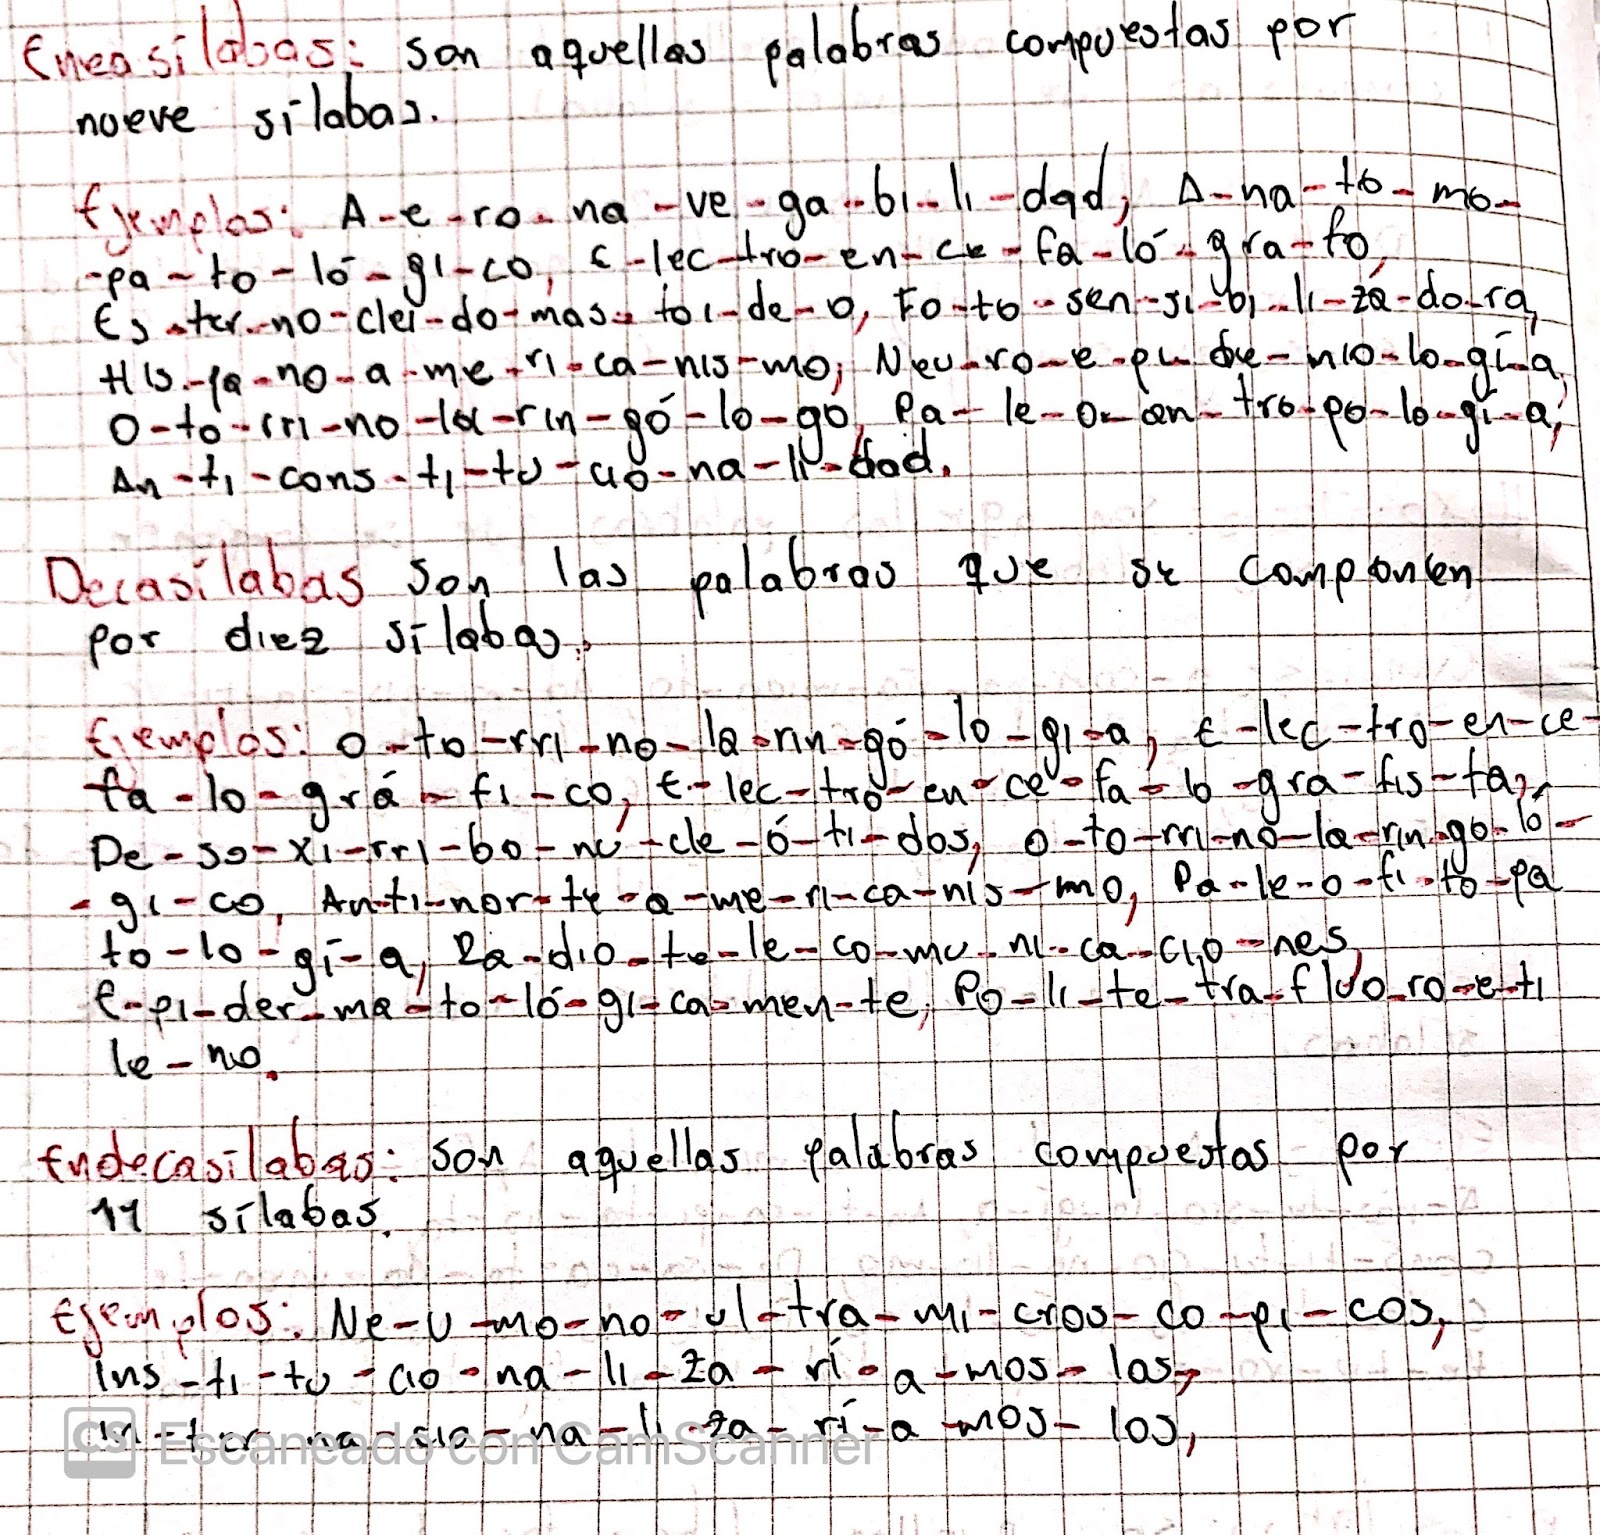 Eneasílabas: son aquellas palabras compuestas por
nueve sílabas.
Ejemplos: A-e-ro-na-ve-ga-bi-li-dad, A-na-to-mo-
-pa-to-ló-gi-co, E-lec-tro-en-ce-fa-ló-gra-fo,
Es-ter-no-clei-do-mas-toi-de-o, Fo-to-sen-si-bi-li-za-do-ra,
His-pa-no-a-me-ri-ca-nis-mo, Neu-ro-e-pi-de-mio-lo-gí-a,
O-to-rri-no-la-rin-gó-lo-go, Pa-le-o-an-tro-po-lo-gí-a,
An-ti-cons-ti-tu-cio-na-li-dad.
Decasílabas son las palabras que se componen
por diez sílabas.
Ejemplos: O-to-rri-no-la-rin-gó-lo-gi-a, E-lec-tro-en-ce-
fa-lo-grá-fi-co, E-lec-tro-en-ce-fa-lo-gra-fis-ta,
De-so-xi-rri-bo-nu-cle-ó-ti-dos, O-to-rri-no-la-rin-go-ló-
-gi-co, An-ti-nor-te-a-me-ri-ca-nis-mo, Pa-le-o-fi-to-pa
to-lo-gí-a, Ra-dio-te-le-co-mu-ni-ca-cio-nes,
E-pi-der-ma-to-ló-gi-ca-men-te, Po-li-te-tra-fluo-ro-e-ti
le-no.
Endecasílabas: son aquellas palabras compuestas por
11 sílabas.
Ejemplos: Ne-u-mo-no-ul-tra-mi-cros-co-pi-cos,
Ins-ti-tu-cio-na-li-za-rí-a-mos-los,
In-ter-na-cio-na-li-za-rí-a-mos-los,
CS Escaneado con CamScanner